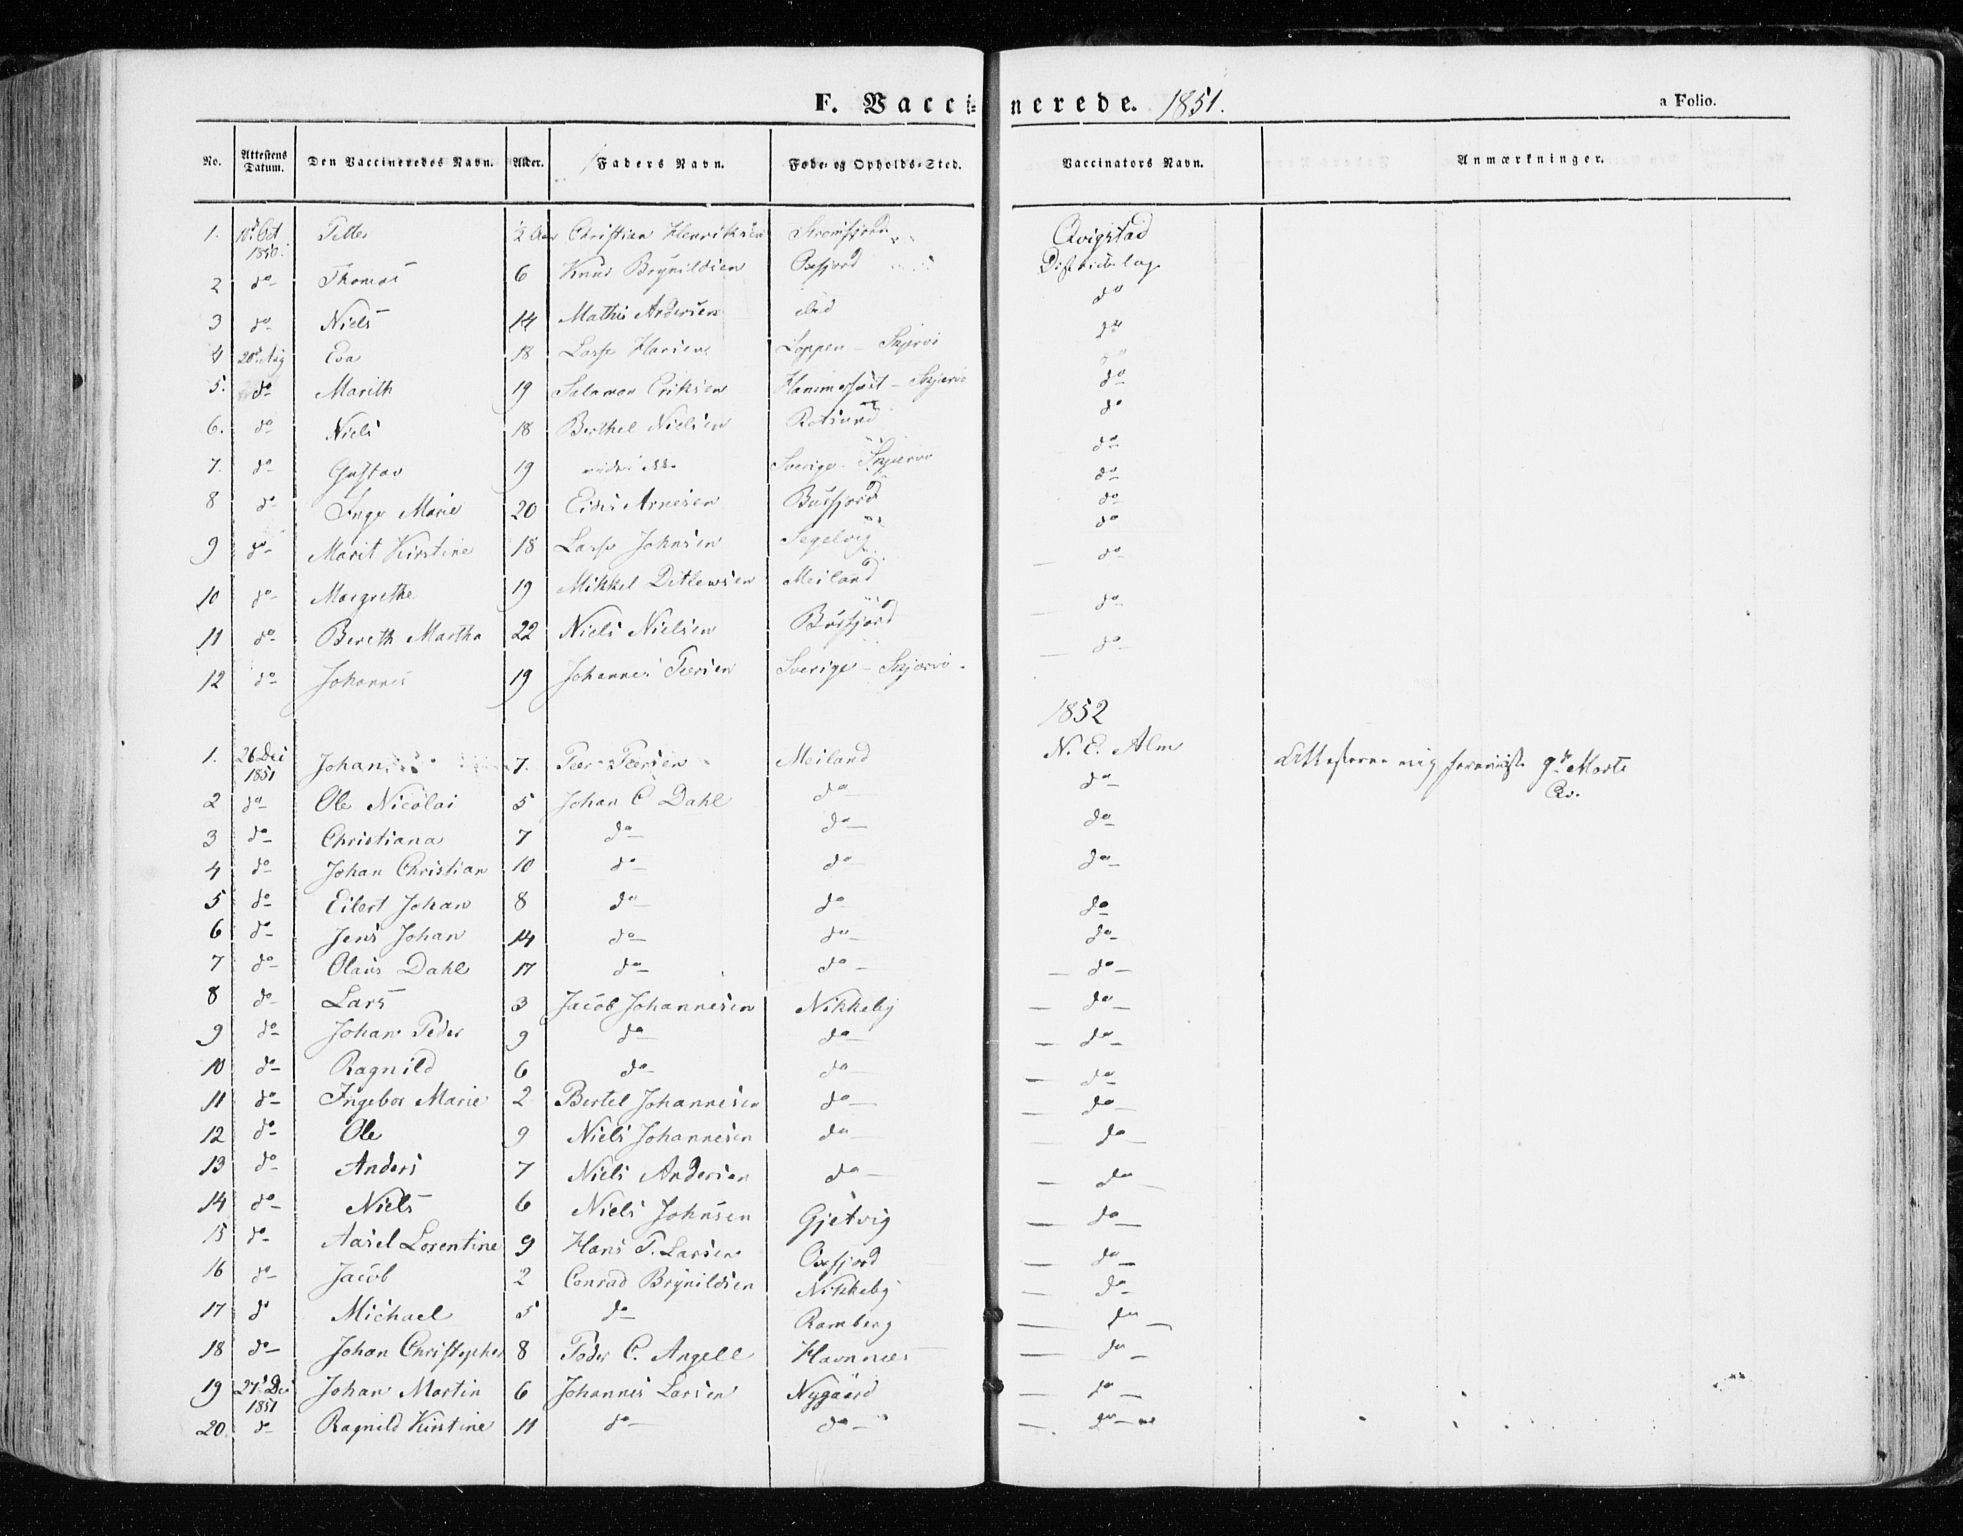 F. Vaccinerede. 1851.
a Folio.
No. Attestens Datum. Den Vaccineredes Navn. Alder. Faders Navn. Føde- og Opholds-Sted. Vaccinators Navn. Anmærkninger.
1. 10d Oct 1850. 2 Aar Christian Henriksen Strømfjord Qvigstad
2 do Thomas 6 Knud Brynildsen Oxfjord Districtslæge
3 do Niels 14 Mathis Andersen ibid do
4 20d Aug Eva 18 Lasse Hansen Loppen - Skjervø do
5. do Marith 19 Salamon Eriksen Hammerfest - Skjervø do
6. do Niels 18 Berthel Nielsen Rotsund do
7. do Gustav 19 Sverige - Skjervø do
8 do Inger Marie 20 Arnesen Burfjord do
9 do Marit Kirstine 18 Lasse Johnsen Segelvig do
10 do Margrethe 19 Mikkel Ditlewsen Meiland do
11 do Bereth Martha 22 Niels Nielsen Burfjord do
12 do Johannes 19 Johannes Persen Sverige - Skjervø do
1852
1. 26 Dec 1851 Johan 7. Peer Peersen Meiland N. C. Alm
2 do Ole Nicolai 5 Johan C Dahl do do
3 do Christiana 7 do do do
4 do Johan Christian 10 do do do
5 do Eilert Johan 8 do do do
6 do Jens Johan 14 do do do
7 do Olaus Dahl 17 do do do
8 do Lars 3 Jacob Johannesen Nikkeby do
9 do Johan Peder 9 do do do
10 do Ragnild 6 do do do
11 do Ingebor Marie 2 Bertel Johannesen do do
12 do Ole 9 Niels Johannesen do do
13 do Anders 7 Niels Andersen do do
14 do Niels 6 Niels Johnsen Gjetvig do
15 do Aasel Lorentine 9 Hans P. Larsen Oxfjord do
16 do Jacob 2 Conrad Brynildsen Nikkeby do
17 do Michael 5 do Ramberg do
18 do Johan Christopher 8 Peder C. Angell Havnnes do
19 27d Dec 1851 Johan Martin 6 Johannes Larsen Nygaard do
20. do Ragnild Kirstine 11 do do do